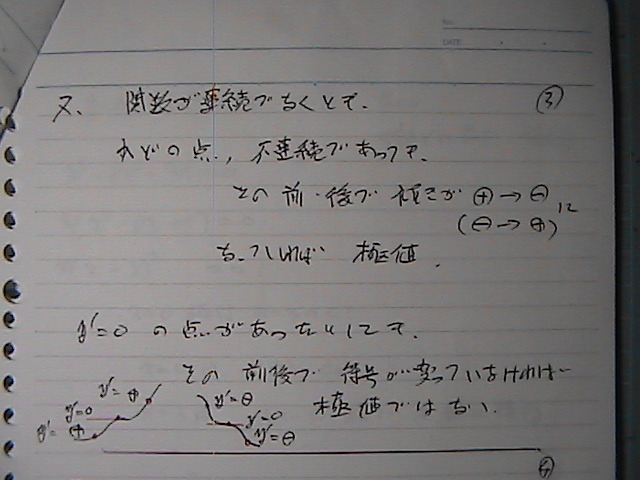 No.
DATE
③
又、関数が連続でなくとも、
などの点、不連続であっても、
その前・後で 傾きが ⊕→⊖に
(⊖→⊕)
なっていれば 極値.
y'=0 の点があったとしても、
その 前後で 符号が変っていなければ
極値ではない.
y'=⊕
y'=0
y'=⊕
y'=⊖
y'=0
y'=⊖